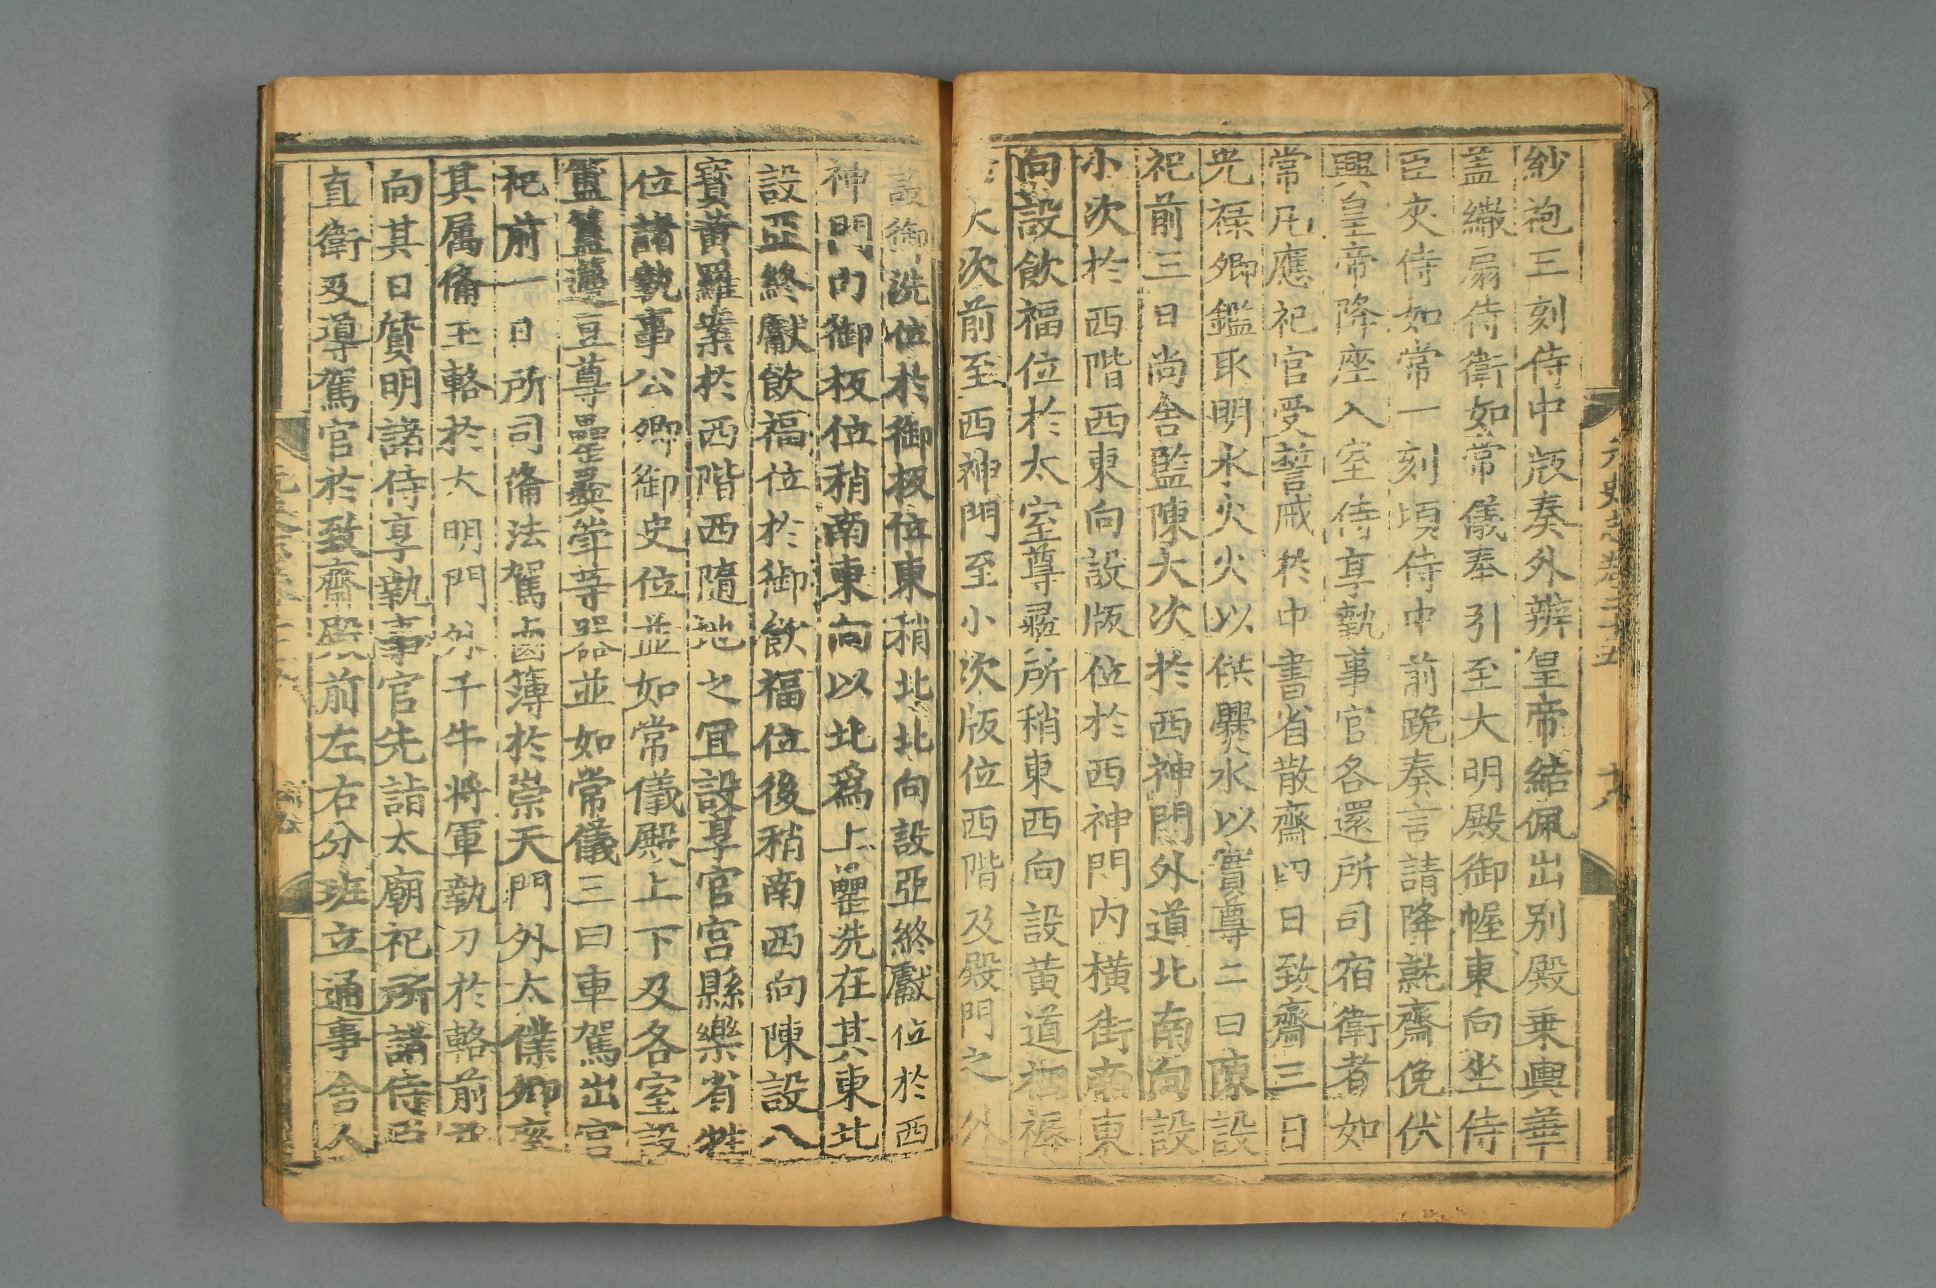 紗袍三刻侍中版奏外辦皇帝結佩出别殿乗輿華
盖繖扇侍衛如常儀奉引至大明殿御幄東向坐侍
臣夾侍如常一刻頃侍中前跪奏言請降就齋俛伏
興皇帝降座入室侍享執事官各還所司宿衛者如
常凡應祀官受誓戒於中書省散齋四日致齋三日
光禄卿鑑取明水火火以供爨水以實尊二曰陳設
祀前三日尚舍監陳大次於西神門外道北南向設
小次於西階西東向設版位於西神門内横街南東
向設飲福位於太室尊彛所稍東西向設黄道裀褥
大次前至西神門至小次版位西階及殿門之外
設御洗位於御板位東稍北北向設亞終獻位於西
神門内御板位稍南東向以北爲上罍洗在其東北
設亞終獻飲福位於御飲福位後稍南西向陳設八
寳黄羅案於西階西隨地之冝設享官宫縣樂省牲
位諸執事公卿御史位並如常儀殿上下及各室設
簠簋籩豆尊罍彛斝等器並如常儀三曰車駕出宫
祀前一日所司備法駕鹵簿於崇天門外太僕卿率
其属備玉輅於大明門外千牛将軍執刀於輅前
向其日質明諸侍享執事官先詣太廟祀所諸侍臣
直衛及導駕官於致齋殿前左右分班立通事舍人
元史志卷二十五
十八